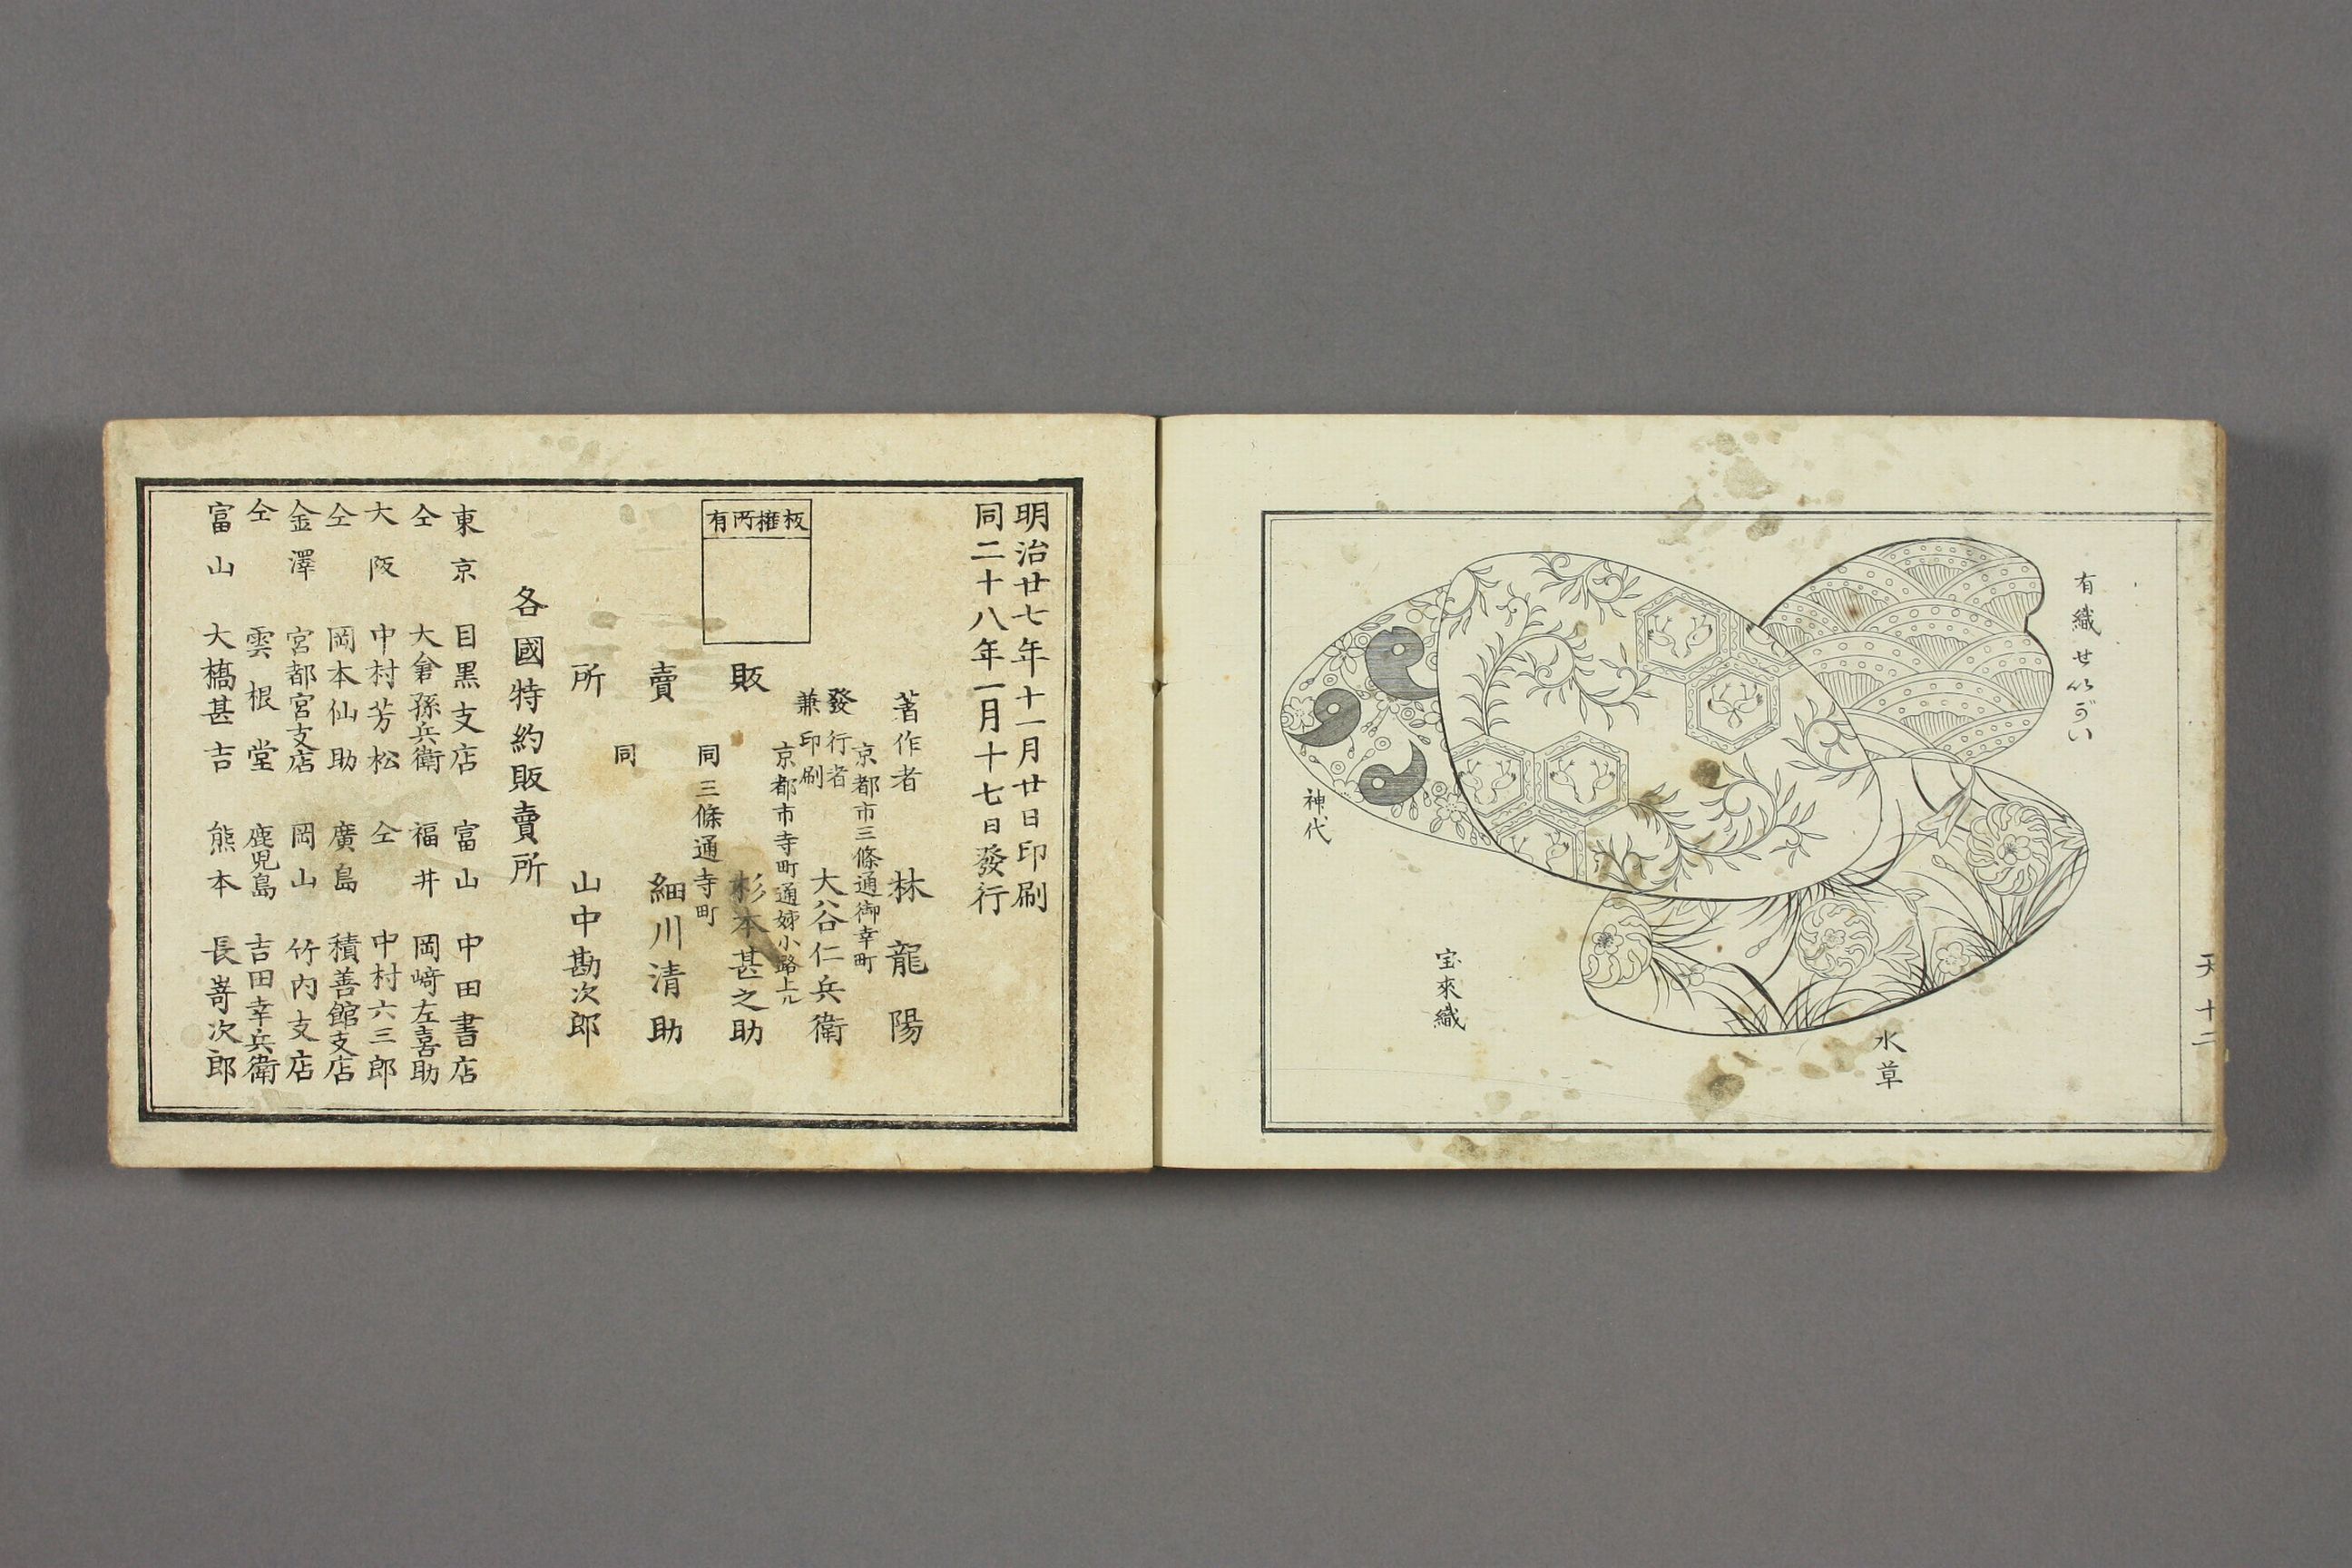 天 十二
有織せいがい
水草
宝來織
神代
明治廿七年十一月廿日印刷
同二十八年一月十七日發行
著作者 林龍陽
京都市三條通御幸町
發行者
兼印刷 大谷仁兵衛
板権所有
京都市寺町通姉小路上ル
販 杉本甚之助
同 三條通寺町
賣 細川清助
同
所 山中勘次郎
各國特約販賣所
東京 目黒支店 富山 中田書店
仝 大倉孫兵衛 福井 岡﨑左喜助
大阪 中村芳松 仝 中村六三郎
仝 岡本仙助 廣島 積善館支店
金澤 宮都宮支店 岡山 竹内支店
仝 雲根堂 鹿児島 吉田幸兵衛
富山 大橋甚吉 熊本 長嵜次郎